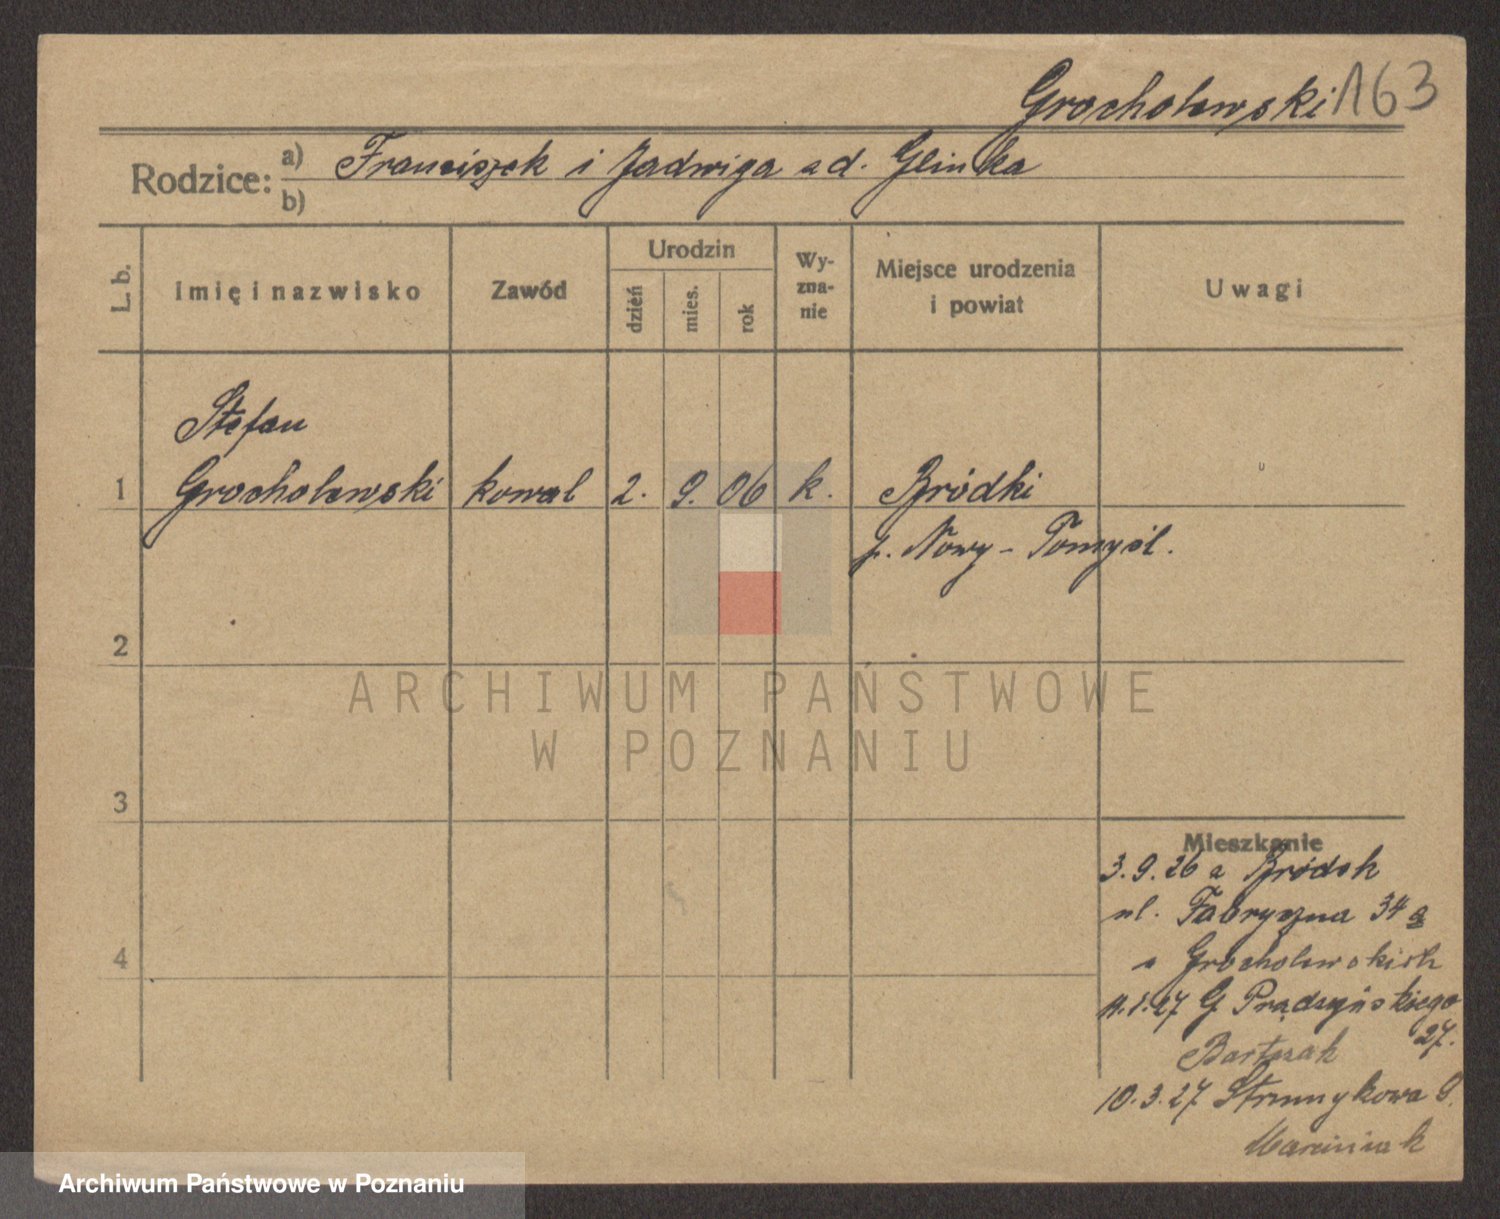 Grocholewski 163
Rodzice: a) Franciszek i Jadwiga zd. Glinka
b)
L. b.
imię i nazwisko
Zawód
Urodzin
dzień
mies.
rok
Wy-
zna-
nie
Miejsce urodzenia
i powiat
Uwagi
Stefan
1 Grocholewski kowal 2. 9. 06 k. Bródki
p. Nowy-Tomyśl.
2
ARCHIWUM PAŃSTWOWE
W POZNANIU
3
Mieszkanie
3.9.26 z Bródek
ul. Fabryczna 34a
4
u Grocholewskich
G. Prądzyńskiego
27.
Bartczak
10.3.27 Strumykowa
Marciniak
Archiwum Państwowe w Poznaniu